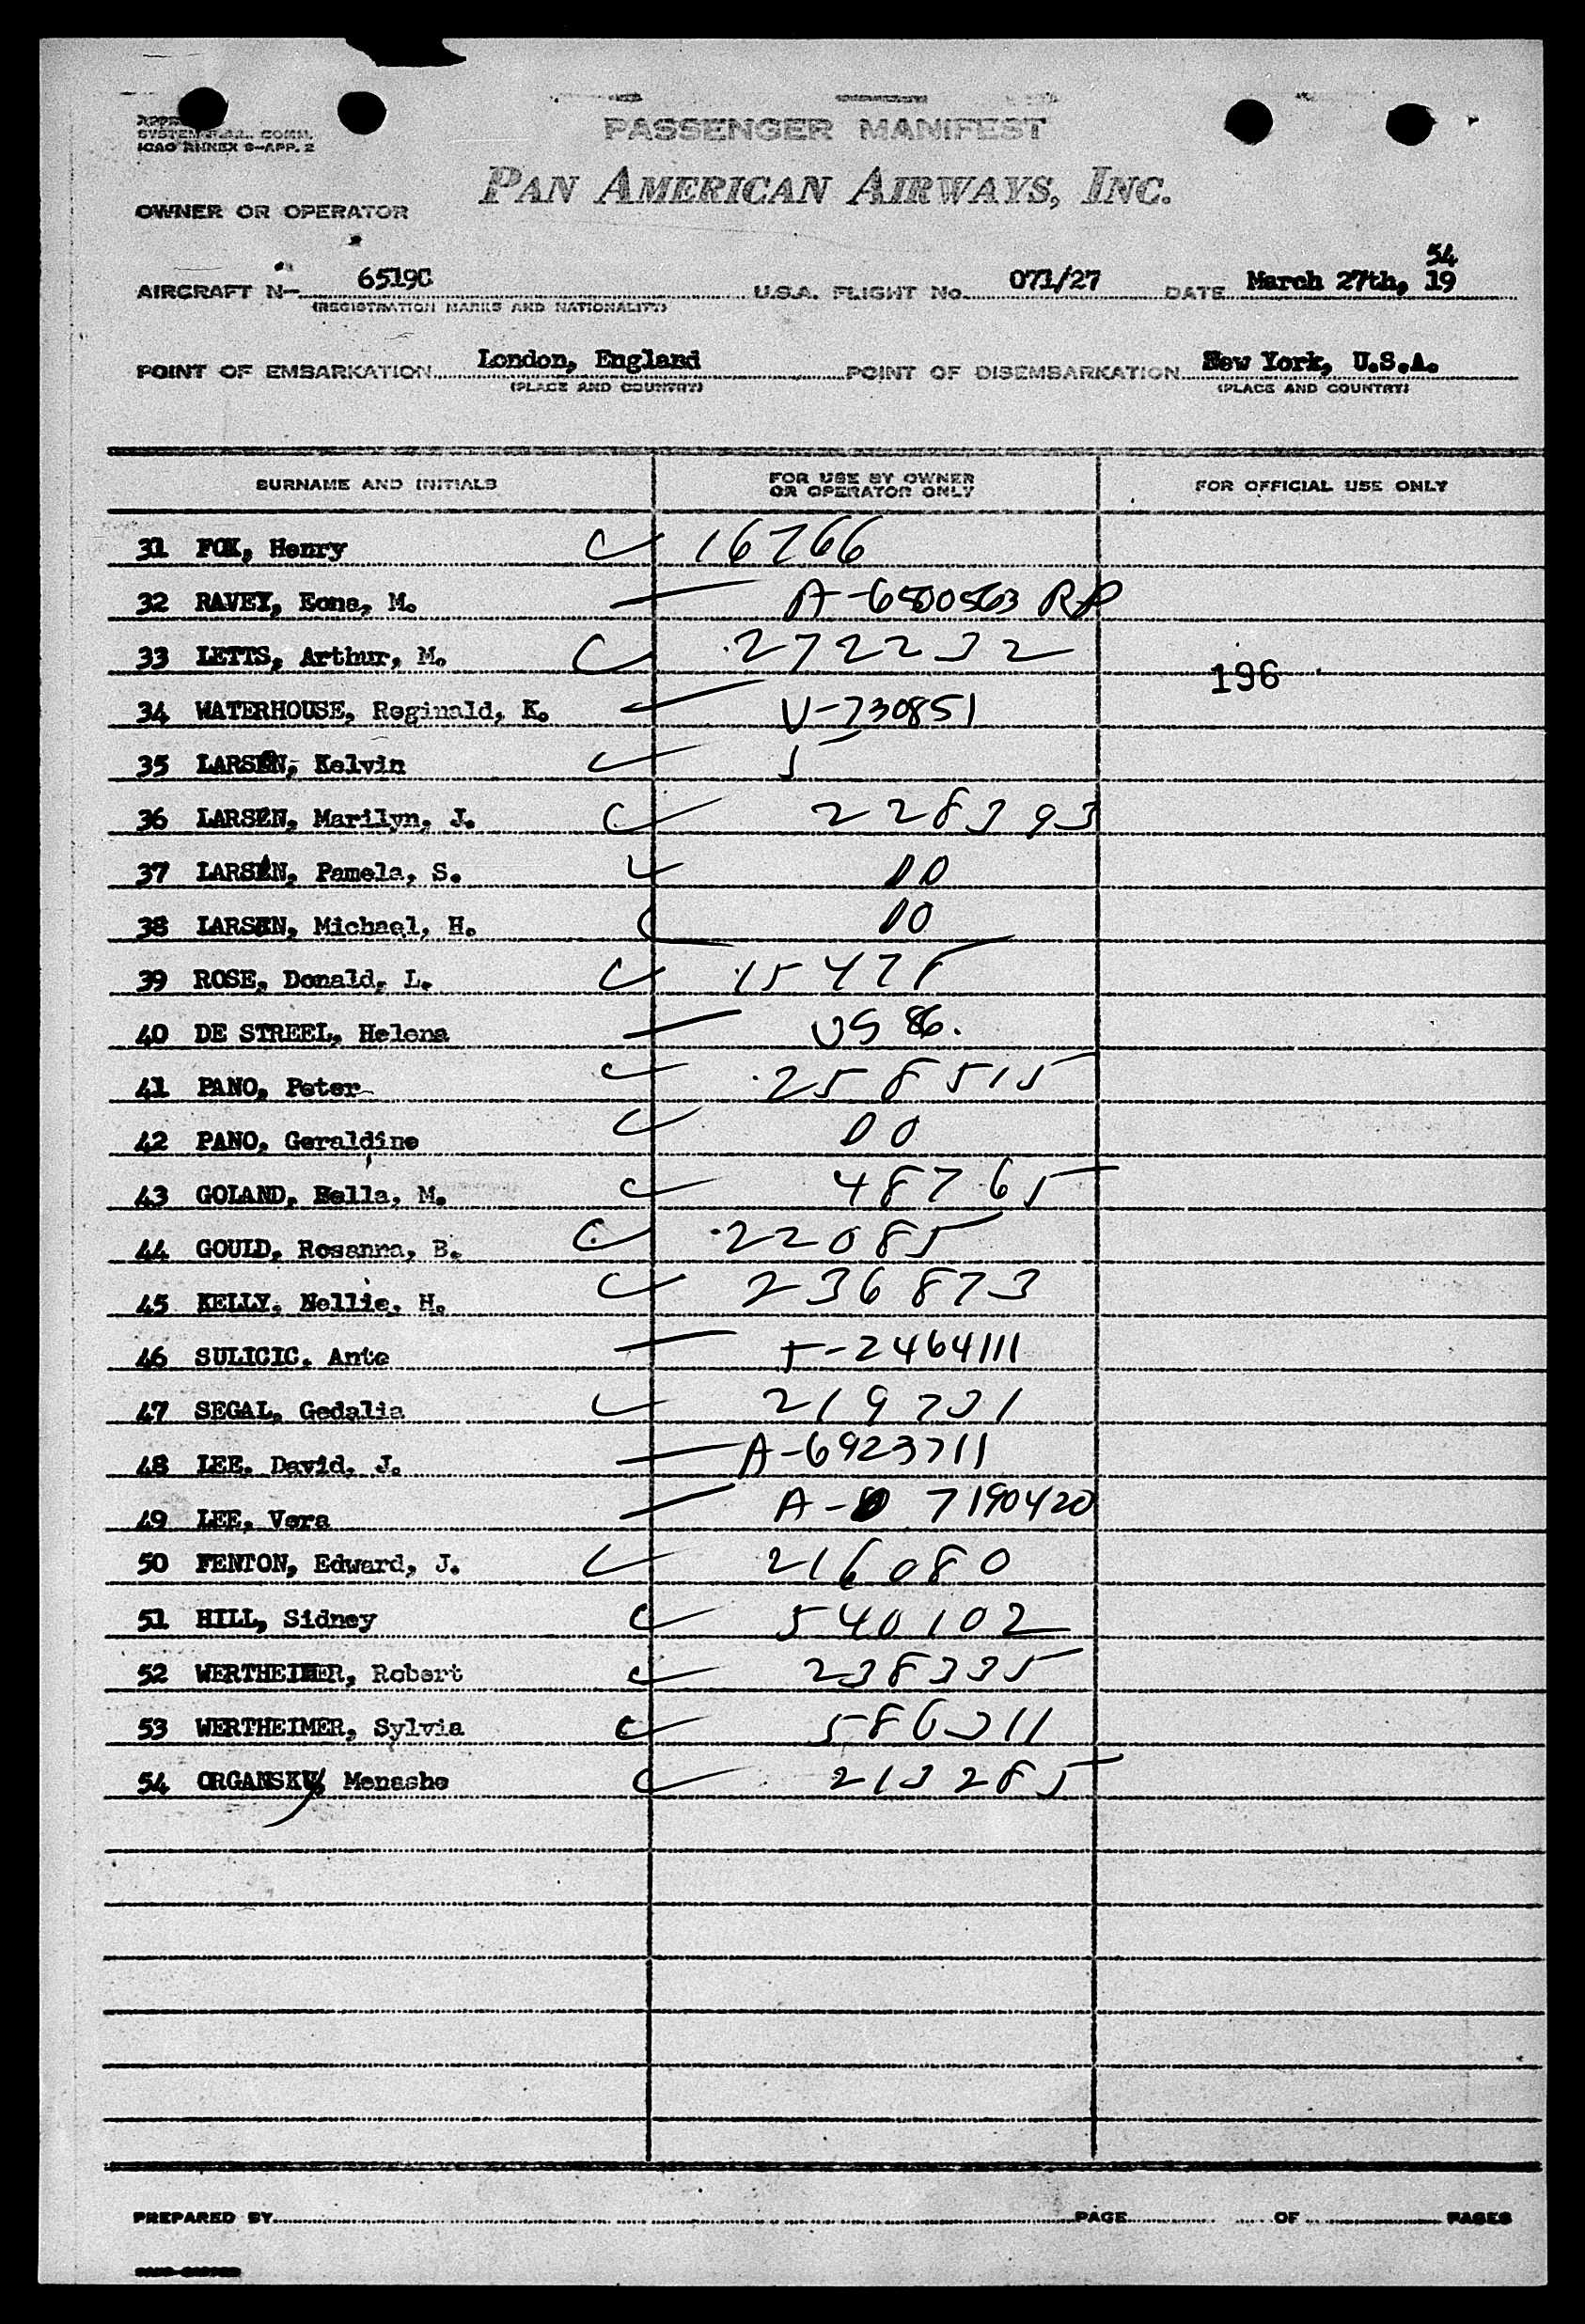 PASSENGER MANIFEST
SYSTEM COMM.
ICAO ANNEX 9-APP. 2
PAN AMERICAN AIRWAYS, INC.
OWNER OR OPERATOR
54
AIRCRAFT N- 6519C U.S.A. FLIGHT No. 071/27 DATE March 27th, 19
(REGISTRATION MARKS AND NATIONALITY)
POINT OF EMBARKATION London, England POINT OF DISEMBARKATION New York, U.S.A.
(PLACE AND COUNTRY) (PLACE AND COUNTRY)
SURNAME AND INITIALS FOR USE BY OWNER OR OPERATOR ONLY FOR OFFICIAL USE ONLY
31 FOX, Henry 16766
32 RAVEY, Eona, M. A-6500563 RP
33 LETTS, Arthur, M. 272232
196
34 WATERHOUSE, Reginald, K. V-730851
35 LARSEN, Kelvin 5
36 LARSEN, Marilyn, J. 228393
37 LARSEN, Pamela, S. DO
38 LARSEN, Michael, H. DO
39 ROSE, Donald, L. 15478
40 DE STREEL, Helena
41 PANO, Peter 258515
42 PANO, Geraldine DO
43 GOLAND, Bella, M. 48765
44 GOULD, Rosanna, B. 22085
45 KELLY, Nellie, H. 236873
46 SULICIC, Ante T-2464111
47 SEGAL, Gedalia 219731
48 LEE, David, J. A-6923711
49 LEE, Vera A- 7190420
50 FENTON, Edward, J. 216080
51 HILL, Sidney 540102
52 WERTHEIMER, Robert 238335
53 WERTHEIMER, Sylvia 586311
54 ORGANSKY, Menashe 213285
PREPARED BY PAGE OF PAGES